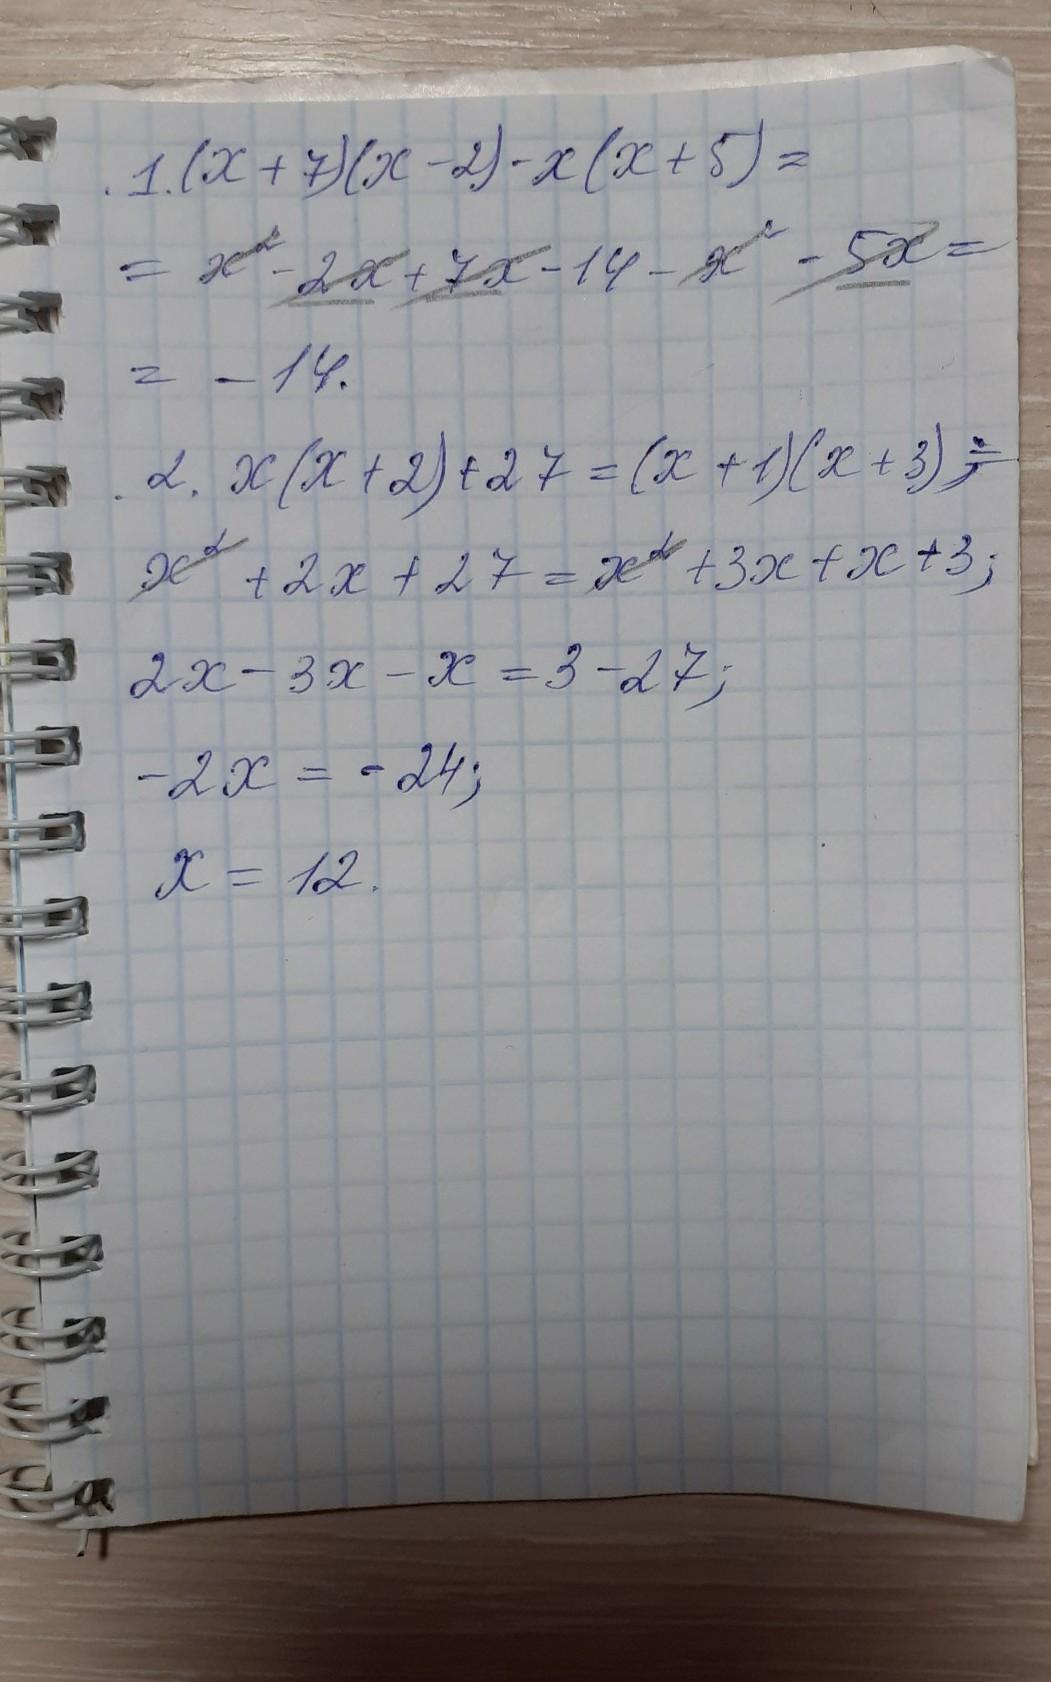 1. (x + 7)(x - 2) - x(x + 5) =
= x² - 2x + 7x - 14 - x² - 5x =
= - 14.
2. x(x + 2) + 27 = (x + 1)(x + 3);
x² + 2x + 27 = x² + 3x + x + 3;
2x - 3x - x = 3 - 27;
-2x = -24;
x = 12.